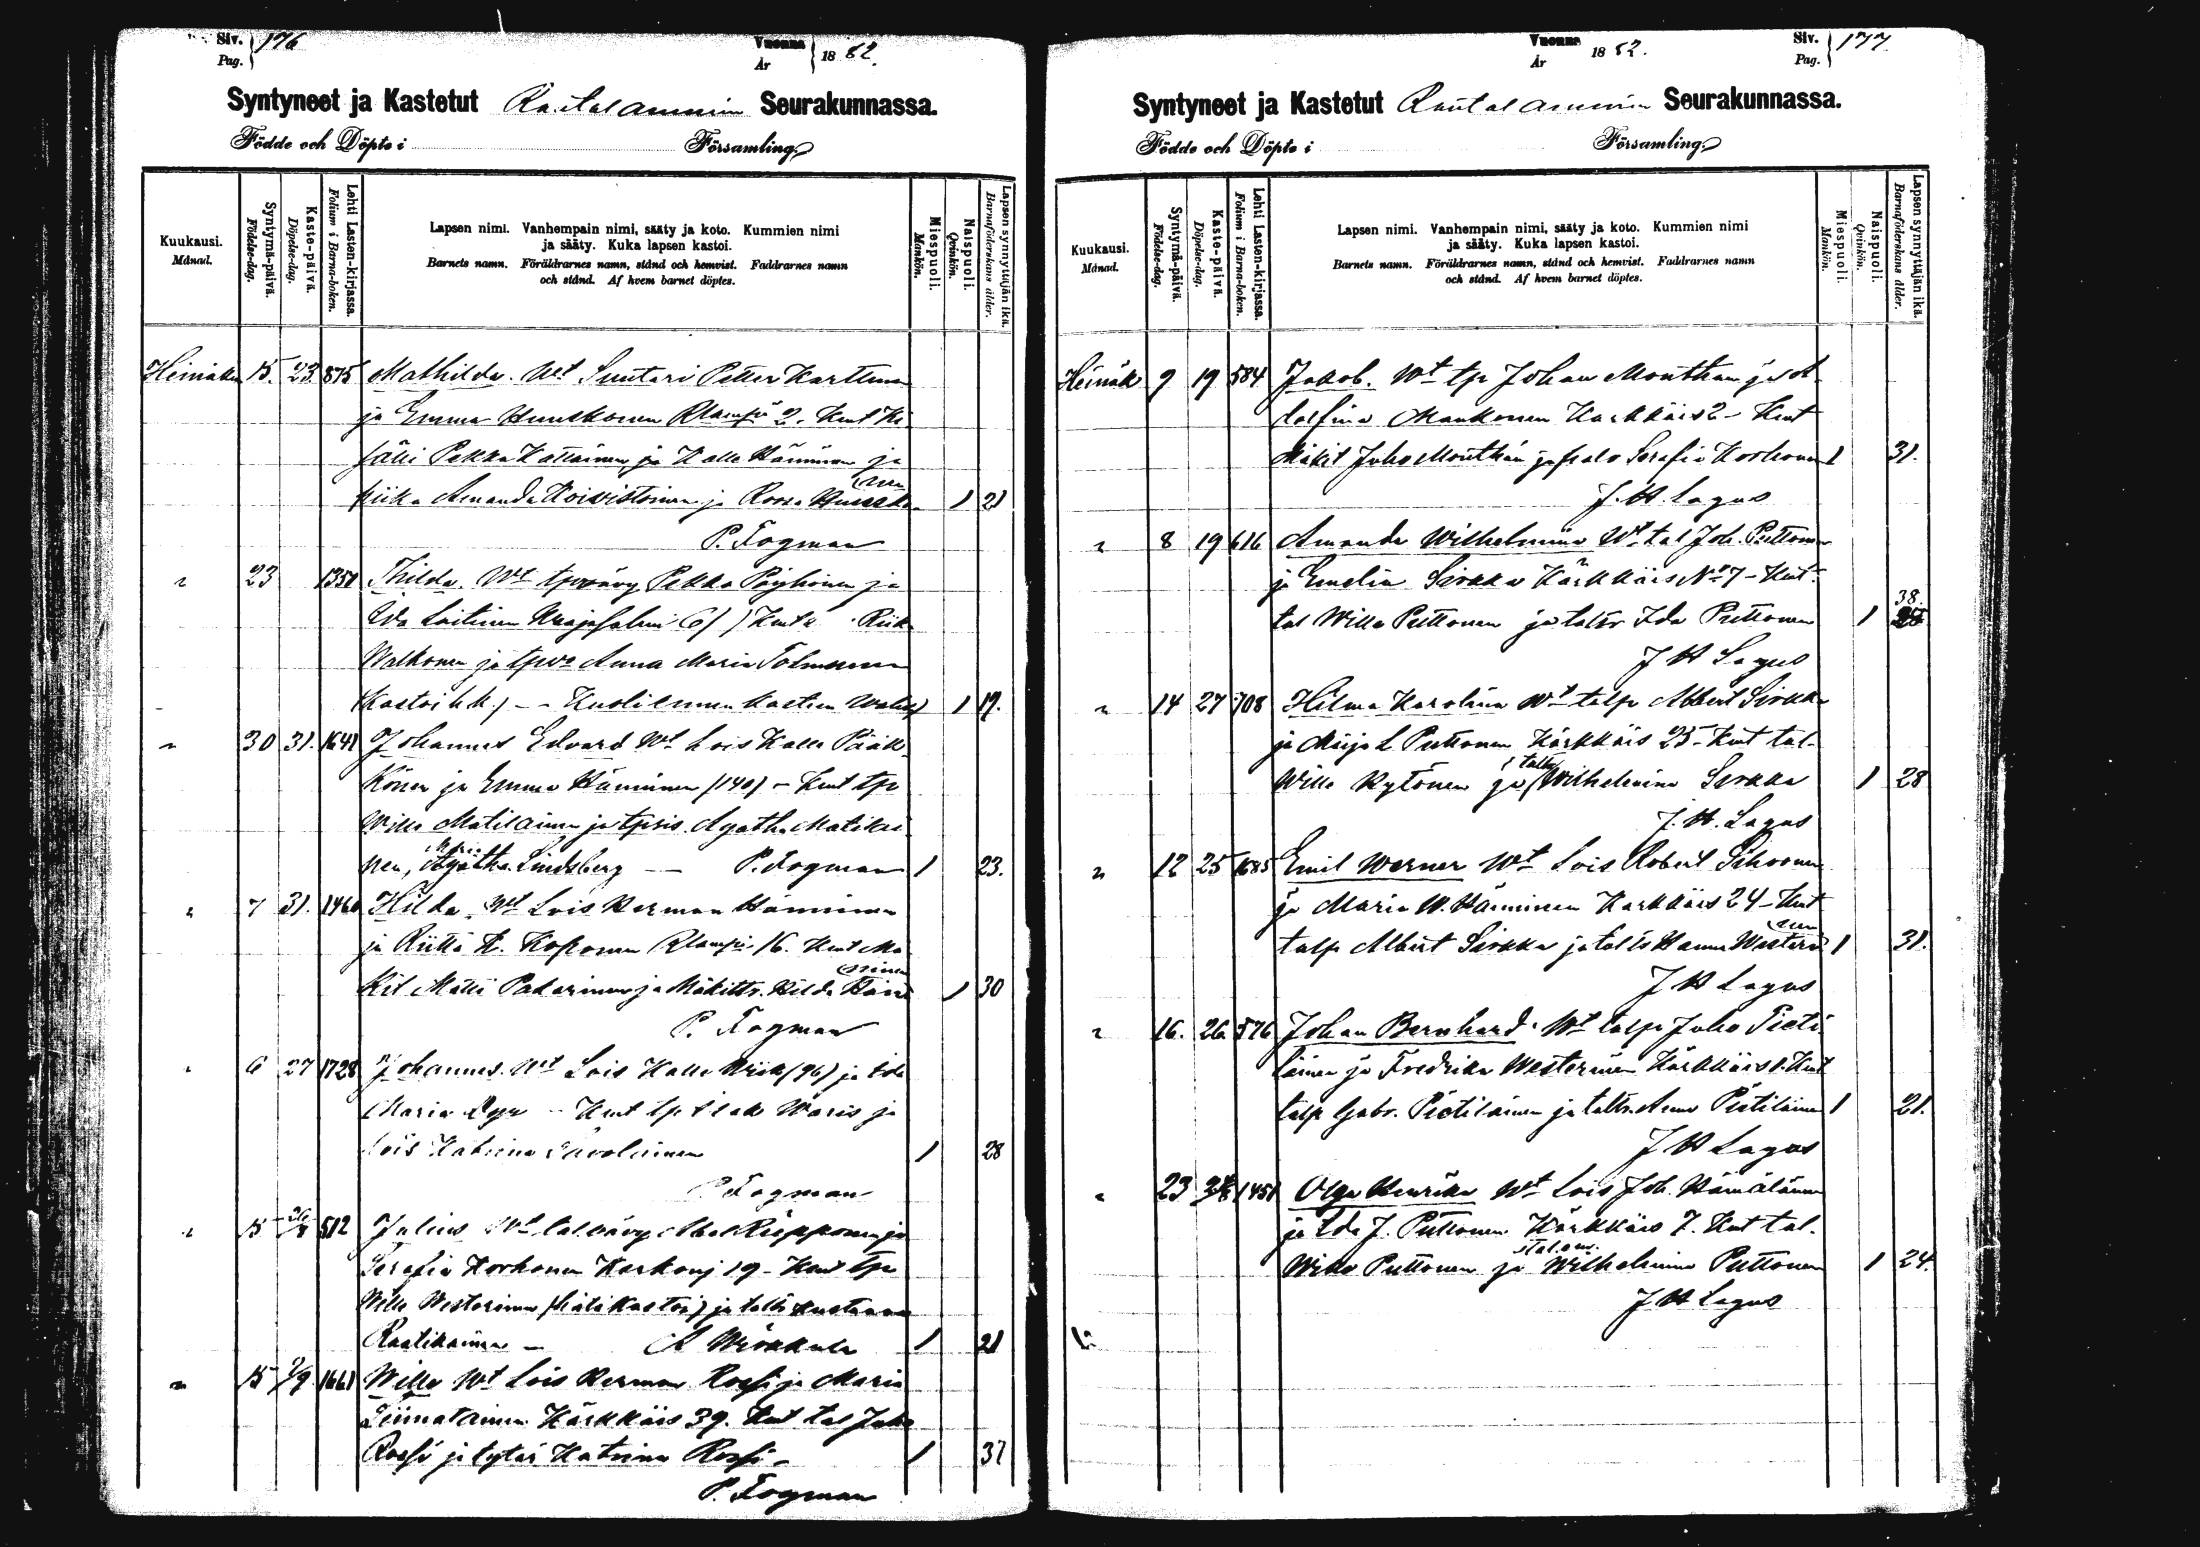 Siv. 176
Pag.
Vuonna 1882.
År
Syntyneet ja Kastetut Rautalammin Seurakunnassa.
Födde och Döpte i Församling
Kuukausi. Månad.
Syntymä-päivä. Födelse-dag.
Kaste-päivä. Döpelse-dag.
Lehti Lasten-kirjassa. Folium i Barna-boken.
Lapsen nimi. Vanhempain nimi, sääty ja koto. Kummien nimi
ja sääty. Kuka lapsen kastoi.
Barnets namn. Föräldrarnes namn, stånd och hemvist. Faddrarnes namn
och stånd. Af hvem barnet döptes.
Miespuoli. Mankön.
Naispuoli. Qvinkön.
Lapsen synnyttäjän ikä. Barnaföderskans ålder.
Heinäku 15. 23 875 Mathilda. Wt Suutari Petter Karttunen
ja Emma Huuskonen 2. Kmt
Pekka ja Kalle Hänninen ja
piika Amanda Koivistoinen ja Roosa Huusko
nen 1 21
P. Fogman
" 23 1351 Thilda. Wt Pekka Pöyhönen ja
Ida Laitinen
Walkonen ja Anna Maria Tolmunen
Kastoi 1 19.
" 30 31. 1641 Johannes Edvard Wt Lois Kalle Pääk
könen ja Emma Hänninen (140) - Kmt tpr
Wille Matilainen ja Agatha Matilai
nen, Agatha Lindsberg -- P. Fogman 1 23.
" 7 31. 1460 Hilda. Wt Lois Herman Hänninen
ja Riitta K. Koponen 16. Kmt Mä
kit Matti Pakarinen ja Mäkittr. Hilda Hän
ninen 1 30
P. Fogman
" 6 27 1728 Johannes. Wt Lois Kalle Wiik (96) ja Ida
Maria - Kmt tp Isak Waris ja
lois Katrina Savolainen 1 28
P. Fogman
" 15 512 Julius Wt Abel Riipponen ja
Serafia Korhonen Kerkonj 19 - Kmt tpr
Wille Westerinen (hätäkastoi) ja Kustaava
Raatikainen - 1 21
" 15 1/9 1661 Wille Wt Lois Herman Rossi ja Maria
Tiimatainen Kärkkäis 39. Kmt tal Juho
Rossi ja Katrina Rossi - 1 37
P. Fogman
Vuonna 1882.
År
Siv. 177
Pag.
Syntyneet ja Kastetut Rautalammin Seurakunnassa.
Födde och Döpte i Församling
Kuukausi. Månad.
Syntymä-päivä. Födelse-dag.
Kaste-päivä. Döpelse-dag.
Lehti Lasten-kirjassa. Folium i Barna-boken.
Lapsen nimi. Vanhempain nimi, sääty ja koto. Kummien nimi
ja sääty. Kuka lapsen kastoi.
Barnets namn. Föräldrarnes namn, stånd och hemvist. Faddrarnes namn
och stånd. Af hvem barnet döptes.
Miespuoli. Mankön.
Naispuoli. Qvinkön.
Lapsen synnyttäjän ikä. Barnaföderskans ålder.
Heinäk 9 19 584 Jakob. Wt tp Johan Mouthan ja A
dolfina Maukonen Karkkäis 2 - Kmt
Mäkit Juho Mouthan ja Serafia Korhonen 1 31.
J. H. Lagus
" 8 19 616 Amanda Wilhelmina Wt tal Joh. Puttonen
ja Emelia Sirkka Kärkkäis No 7 - Kmt
tal Wille Puttonen ja taltr Ida Puttonen 1 38.
J H Lagus
" 14 27 708 Hilma Karolina Wt talp Albert Sirkka
ja Maija L Puttonen Kärkkäis 25 - Kmt tal.
Wille Kytönen ja taltr Wilhelmina Sirkka 1 28
J. H. Lagus
" 12 25 1685 Emil Werner Wt Lois Robert Sihvonen
ja Maria W. Hänninen Karkkäis 24 - Kmt
talp Albert Sirkka ja Hanna Westeri
nen 1 31.
J H Lagus
" 16. 26. 576 Johan Bernhard. Wt talp Juho Pieti
läinen ja Fredrika Westerinen Kärkkäis 1. Kmt
talp Gabr. Pietiläinen ja taltr. Anna Pietiläinen 1 21.
J H Lagus
" 23 1451 Olga Henrika Wt Lois Joh. Hämäläinen
ja Ida J. Puttonen Kärkkäis 7. Kmt tal.
Wille Puttonen ja tal.em. Wilhelmina Puttonen 1 24.
J H Lagus